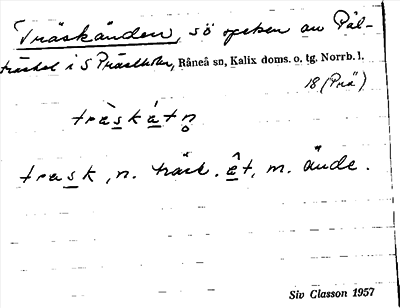 Träskänden, sö spetsen av Päl-
träsket i S Prästholm, Råneå sn, Kalix doms. o. tg. Norrb. l.
18 (Prä)
träskátn̥
trask, n. träsk. êt, m. ände.
Siv Classon 1957